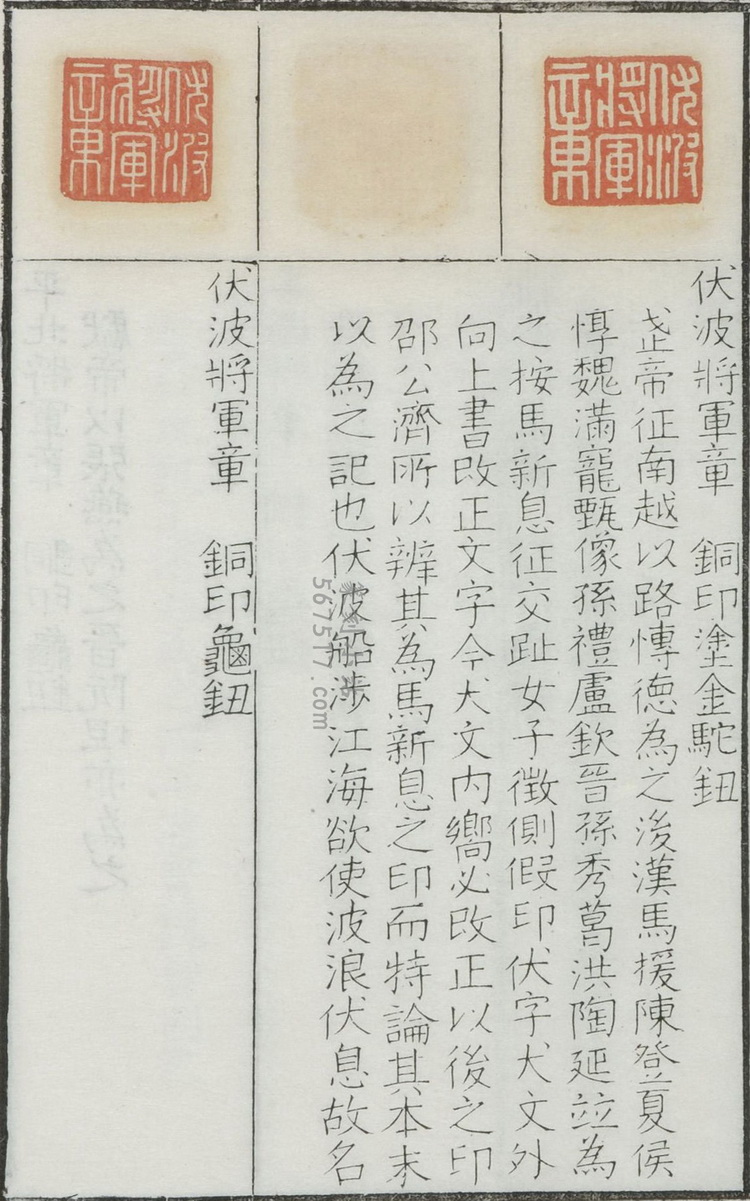 伏波將軍章
伏波將軍章
伏波將軍章 銅印塗金駝鈕
武帝征南越以路愽德為之後漢馬援陳登夏侯
惇魏滿寵甄像孫禮盧欽晉孫秀葛洪陶延竝為
之按馬新息征交趾女子徵側假印伏字犬文外
向上書改正文字今犬文内嚮必改正以後之印
邵公濟所以辨其為馬新息之印而特論其本末
以為之記也伏波船涉江海欲使波浪伏息故名
伏波將軍章 銅印龜鈕
567517.com